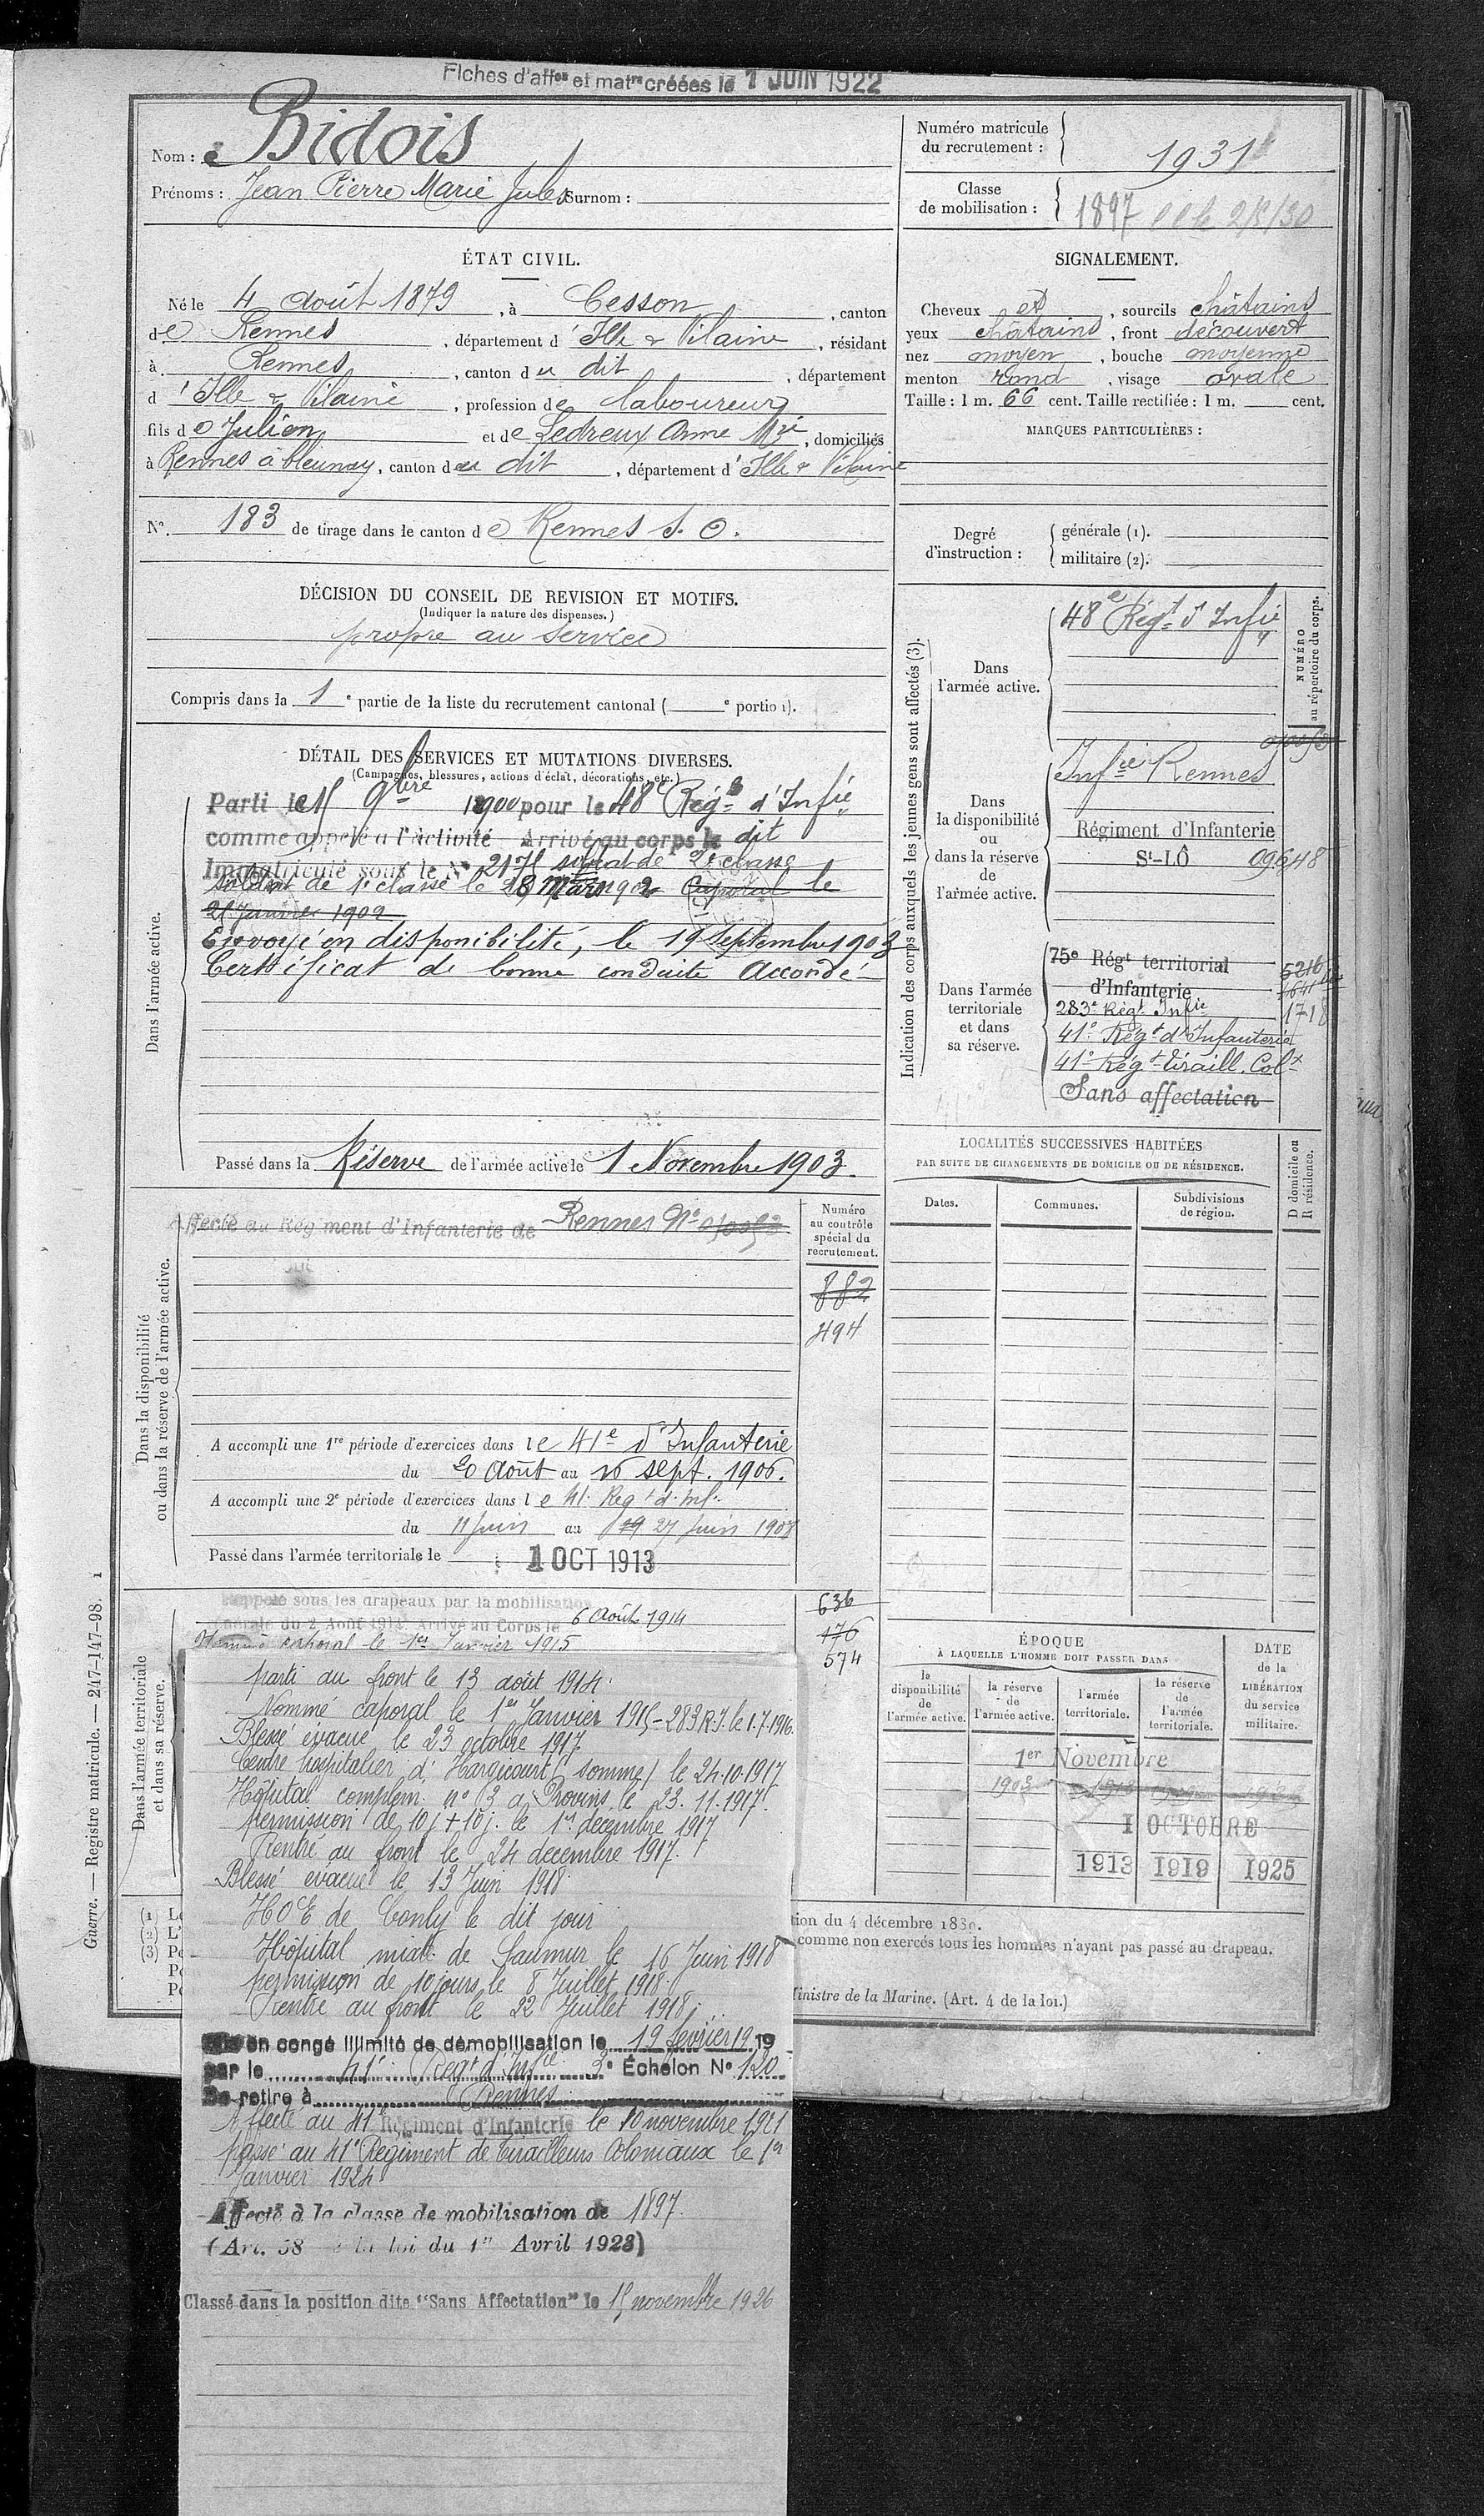 Fiches d'affon et matre créées le 1 JUIN 1922
Nom : Bidois
Prénoms : Jean Pierre Marie Jules Surnom :
Numéro matricule du recrutement : 1931
Classe de mobilisation : 1897
ÉTAT CIVIL.
Né le 4 août 1879, à Cesson, canton
de Rennes, département d'Ille & Vilaine, résidant
à Rennes, canton du dit, département
d'Ille & Vilaine, profession de laboureur
fils de Julien et de Ledreux Anne Mie, domiciliés
à Rennes à Cleunay, canton du dit, département d'Ille & Vilaine
No. 183 de tirage dans le canton de Rennes S. O.
SIGNALEMENT.
Cheveux et, sourcils châtains
yeux châtains, front découvert
nez moyen, bouche moyenne
menton rond, visage ovale
Taille : 1 m. 66 cent. Taille rectifiée : 1 m. cent.
MARQUES PARTICULIÈRES :
Degré d'instruction :
générale (1).
militaire (2).
DÉCISION DU CONSEIL DE REVISION ET MOTIFS.
(Indiquer la nature des dispenses.)
propre au service
Compris dans la 1e partie de la liste du recrutement cantonal ( e portion).
DÉTAIL DES SERVICES ET MUTATIONS DIVERSES.
(Campagnes, blessures, actions d'éclat, décorations, etc.)
Dans l'armée active.
Parti le 15 9bre 1900 pour le 48e Régt d'Infie
comme appelé à l'activité Arrivé au corps le dit
Immatriculé sous le No soldat de 2e classe
soldat de 1e classe le 18 Mars 1902 Caporal le
21 Janvier 1902
Envoyé en disponibilité, le 19 Septembre 1903
Certificat de bonne conduite Accordé
Passé dans la Réserve de l'armée active le 1 Novembre 1903.
Indication des corps auxquels les jeunes gens sont affectés (3).
NUMÉRO au répertoire du corps.
Dans l'armée active.
48e Régt d'Infie
Dans la disponibilité ou dans la réserve de l'armée active.
Infie Rennes
Régiment d'Infanterie
St-LÔ 09648
Dans l'armée territoriale et dans sa réserve.
75e Régt territorial 5216
d'Infanterie
283e Régt Infie 1718
41e Régt d'Infanterie
41e Régt Tiraill. Colx
Sans affectation
Dans la disponibilité ou dans la réserve de l'armée active.
Affecté au Régiment d'Infanterie de Rennes No
Numéro au contrôle spécial du recrutement.
882
494
A accompli une 1re période d'exercices dans le 41e d'Infanterie
du 20 Août au 16 sept. 1906.
A accompli une 2e période d'exercices dans le 41. Regt d'Inf.
du 11 juin au 27 juin 1908
Passé dans l'armée territoriale le 1 OCT 1913
LOCALITÉS SUCCESSIVES HABITÉES
PAR SUITE DE CHANGEMENTS DE DOMICILE OU DE RÉSIDENCE.
Dates. Communes. Subdivisions de région. D domicile ou R résidence.
Dans l'armée territoriale et dans sa réserve.
Rappelé sous les drapeaux par la mobilisation
générale du 2 Août 1914. Arrivé au Corps le 6 août 1914
Nommé caporal le 1er Janvier 1915
636
176
574
parti au front le 13 août 1914.
Nommé caporal le 1er Janvier 1915 - 283 R.I. le 1.7.1916.
Blessé évacué le 23 octobre 1917
Centre hospitalier d'Hargicourt (Somme) le 24.10.1917
Hôpital complem. no 13 à Provins le 23.11.1917.
permission de 10 j + 10 j. le 1er décembre 1917
Rentré au front le 24 décembre 1917.
Blessé évacué le 13 Juin 1918
HOE de Conty le dit jour
Hôpital mixte de Saumur le 16 Juin 1918
permission de 10 jours le 8 Juillet 1918.
Rentré au front le 22 Juillet 1918.
Mis en congé illimité de démobilisation le 19 février 1919
par le 41e Régt d'Infie 3e Échelon No 120
Se retire à Rennes
Affecté au 41e Régiment d'Infanterie le 10 novembre 1921
passé au 41e Régiment de Tirailleurs Coloniaux le 1er
Janvier 1924
Affecté à la classe de mobilisation de 1897
(Art. 58 de la loi du 1er Avril 1923)
Classé dans la position dite "Sans Affectation" le 15 novembre 1926
ÉPOQUE
À LAQUELLE L'HOMME DOIT PASSER DANS
la disponibilité de l'armée active.
la réserve de l'armée active.
l'armée territoriale.
la réserve de l'armée territoriale.
DATE de la LIBÉRATION du service militaire.
1er Novembre
1903
1 OCTOBRE
1913 1919 1925
(1) L
(2) L'
(3) Po
tion du 4 décembre 1830.
comme non exercés tous les hommes n'ayant pas passé au drapeau.
Ministre de la Marine. (Art. 4 de la loi.)
Guerre. — Registre matricule. — 247-147-98. 1